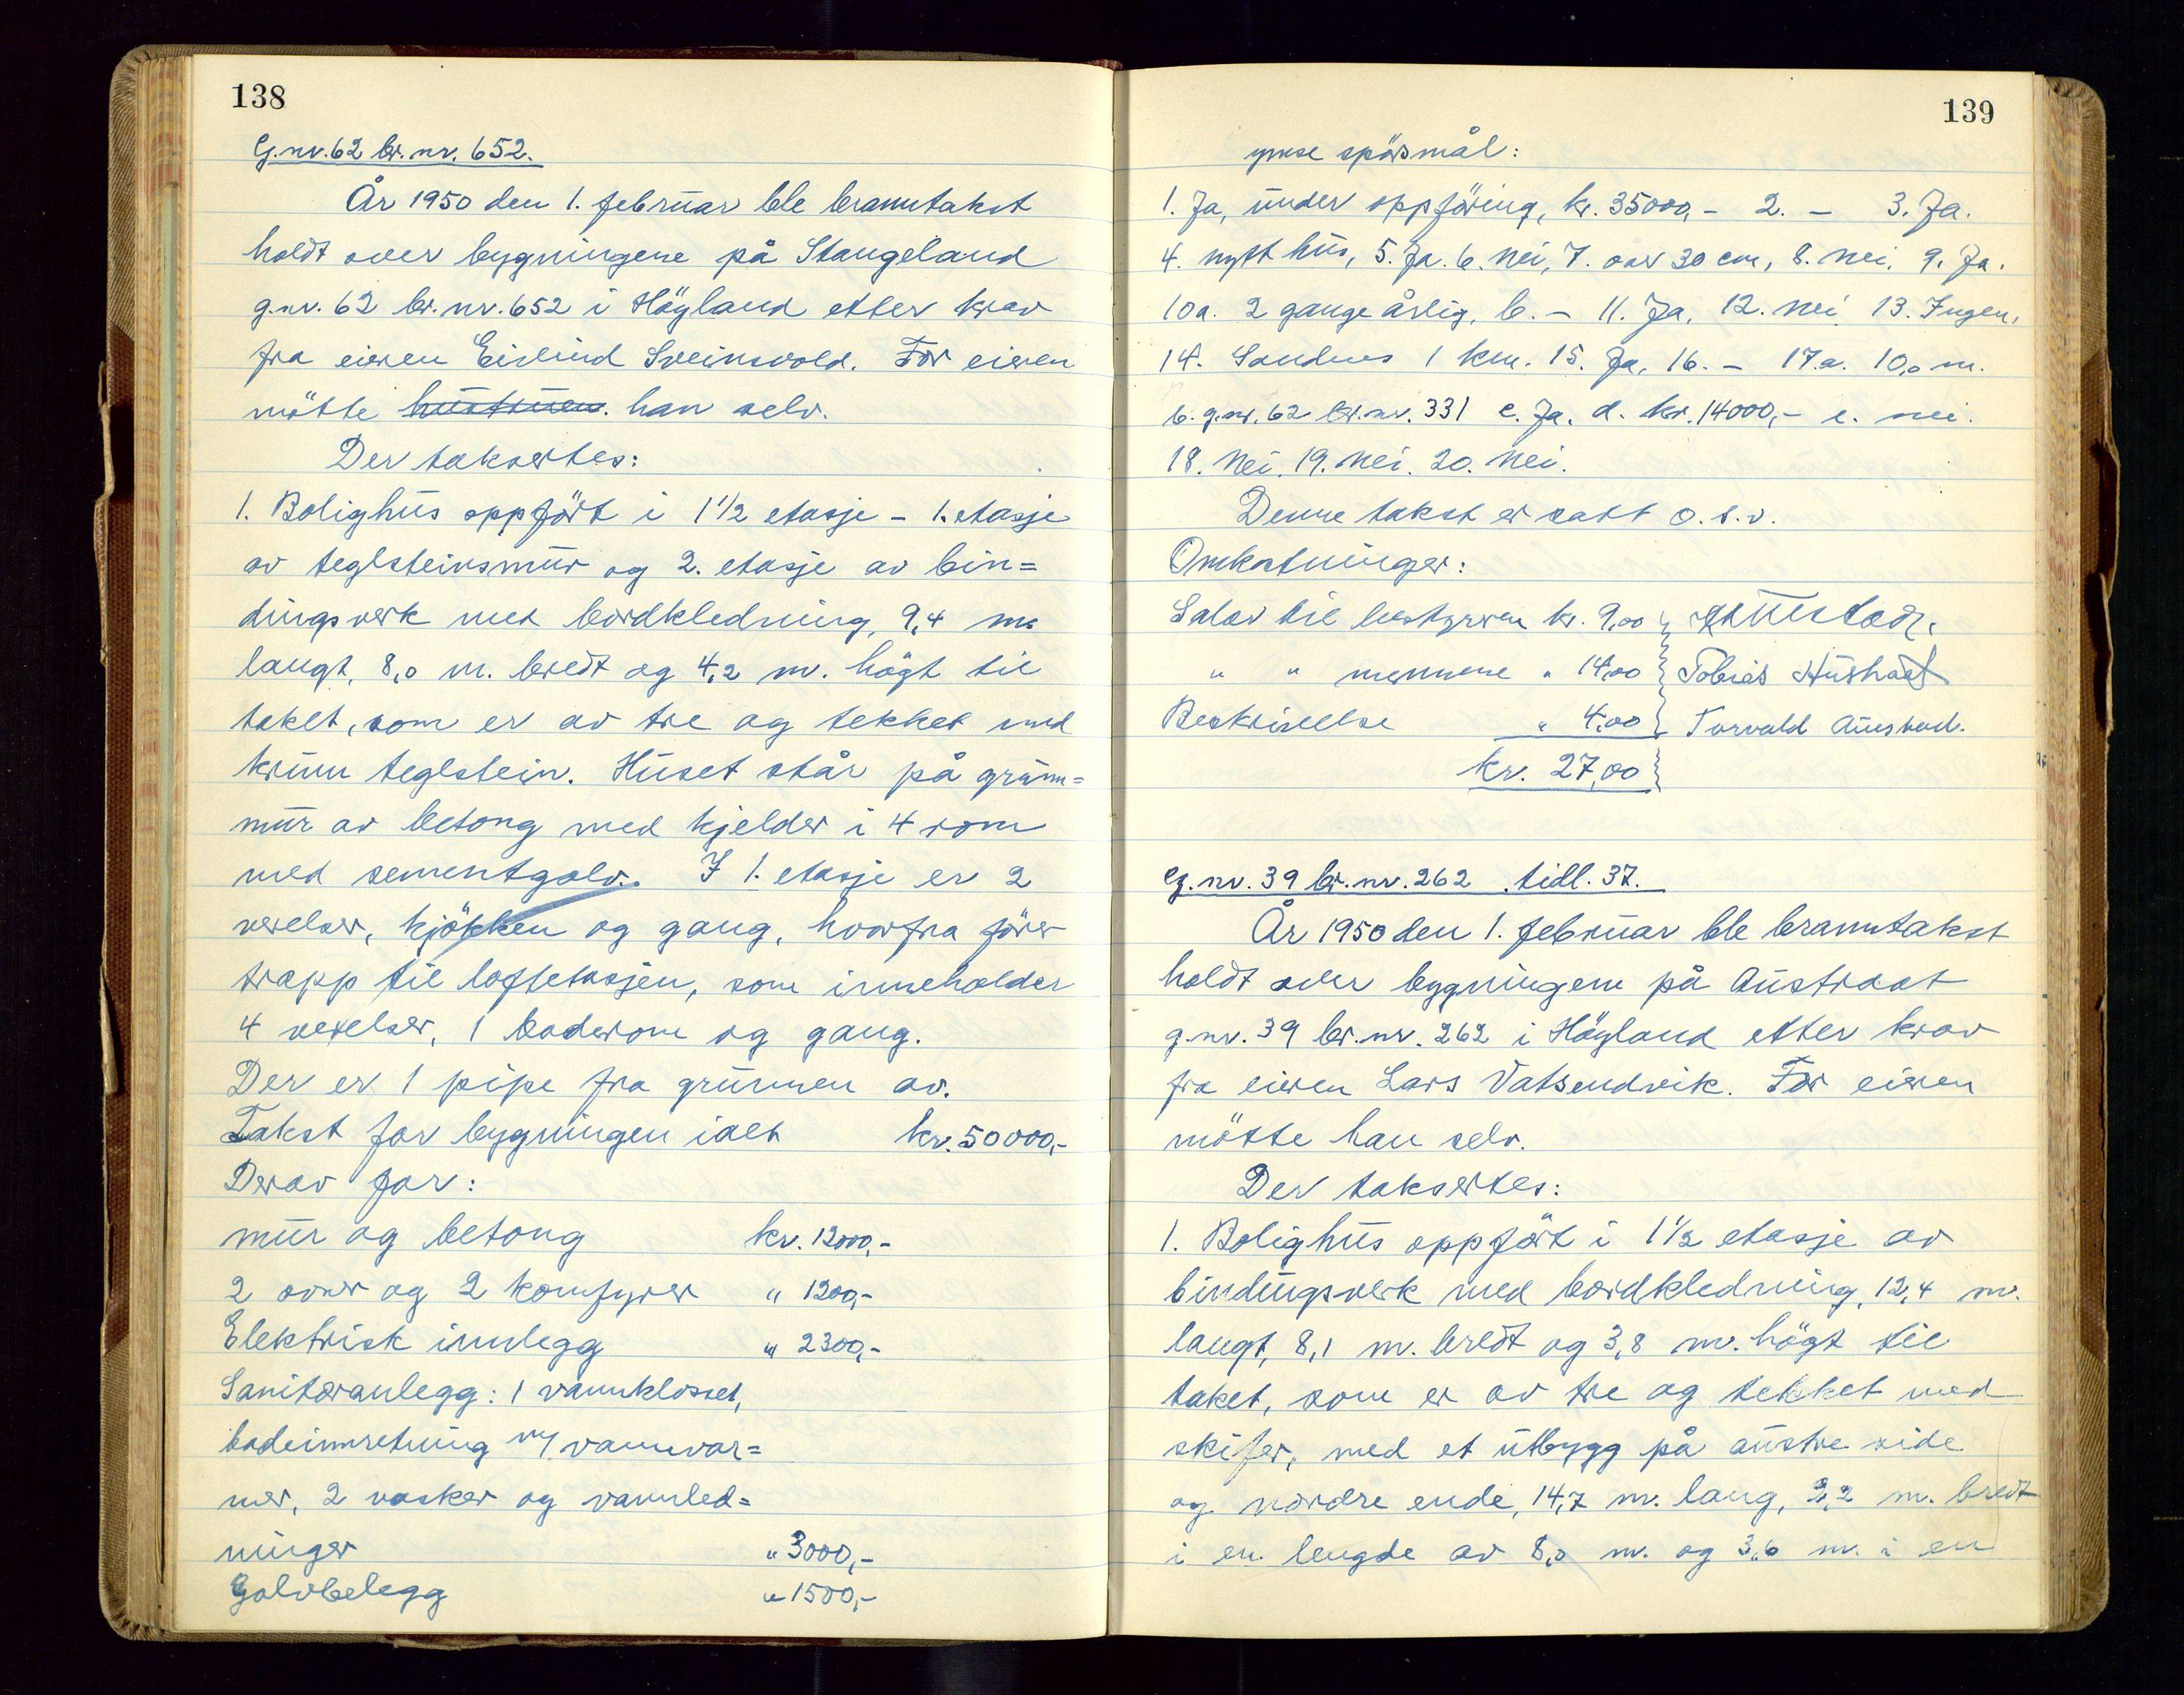 138
G.nr. 62 br.nr. 652.
År 1950 den 1. februar ble branntakst
holdt over bygningene på Stangeland
g.nr. 62 br.nr. 652 i Höyland etter krav
fra eieren Eivind Sveinsvold. For eieren
mötte hustruen. han selv.
Der taksertes:
1. Bolighus oppfört i 1 1/2 etasje - 1. etasje
av teglsteinsmur og 2. etasje av bin=
dingsverk med bordkledning, 9,4 m.
langt, 8,0 m. bredt og 4,2 m. högt til
taket, som er av tre og tekket med
krum teglstein. Huset står på grunn=
mur av betong med kjelder i 4 rom
med sementgolv. I 1. etasje er 2
verelser, kjökken og gang, hvorfra förer
trapp til loftetasjen, som inneholder
4 verelser, 1 baderom og gang.
Der er 1 pipe fra grunnen av.
Takst for bygningen ialt kr. 50000,-
Derav for:
mur og betong kr. 12000,-
2 ovner og 2 komfyrer " 1200,-
Elektrisk innlegg " 2300,-
Sanitæranlegg: 1 vannklosset,
badeinnretning m/ vannvar=
mer, 2 vasker og vannled=
ninger " 3000,-
Golvbelegg " 1500,-
139
ymse spörsmål:
1. Ja, under oppföring, kr. 35000,- 2. - 3. Ja.
4. nytt hus, 5. Ja. 6. Nei, 7. over 30 cm, 8. nei. 9. Ja.
10a. 2 gange årlig, b. - 11. Ja, 12. nei 13. Ingen,
14. Sandnes 1 km. 15. Ja, 16. - 17.a. 10,0 m.
b. g.nr. 62 br.nr. 331 c. Ja. d. kr. 14000,- e. nei.
18. Nei. 19. Nei. 20. Nei.
Denne takst er satt o.s.v.
Omkostninger:
Salær til bestyreren kr. 9,00
" " mennene " 14,00 Tobias Hushaat
Beskrivelse " 4,00 Torvald Austrad.
kr. 27,00
G.nr. 39 br.nr. 262 tidl. 37.
År 1950 den 1. februar ble branntakst
holdt over bygningene på Austraat
g.nr. 39 br.nr. 262 i Höyland etter krav
fra eieren Lars Vatsendvik. For eieren
mötte han selv.
Der taksertes:
1. Bolighus oppfört i 1 1/2 etasje av
bindingsverk med bordkledning, 12,4 m.
langt, 8,1 m. bredt og 3,8 m. högt til
taket, som er av tre og tekket med
skifer, med et utbygg på austre side
og nordre ende, 14,7 m. lang, 2,2 m. bredt
i en lengde av 8,0 m. og 3,6 m. i en